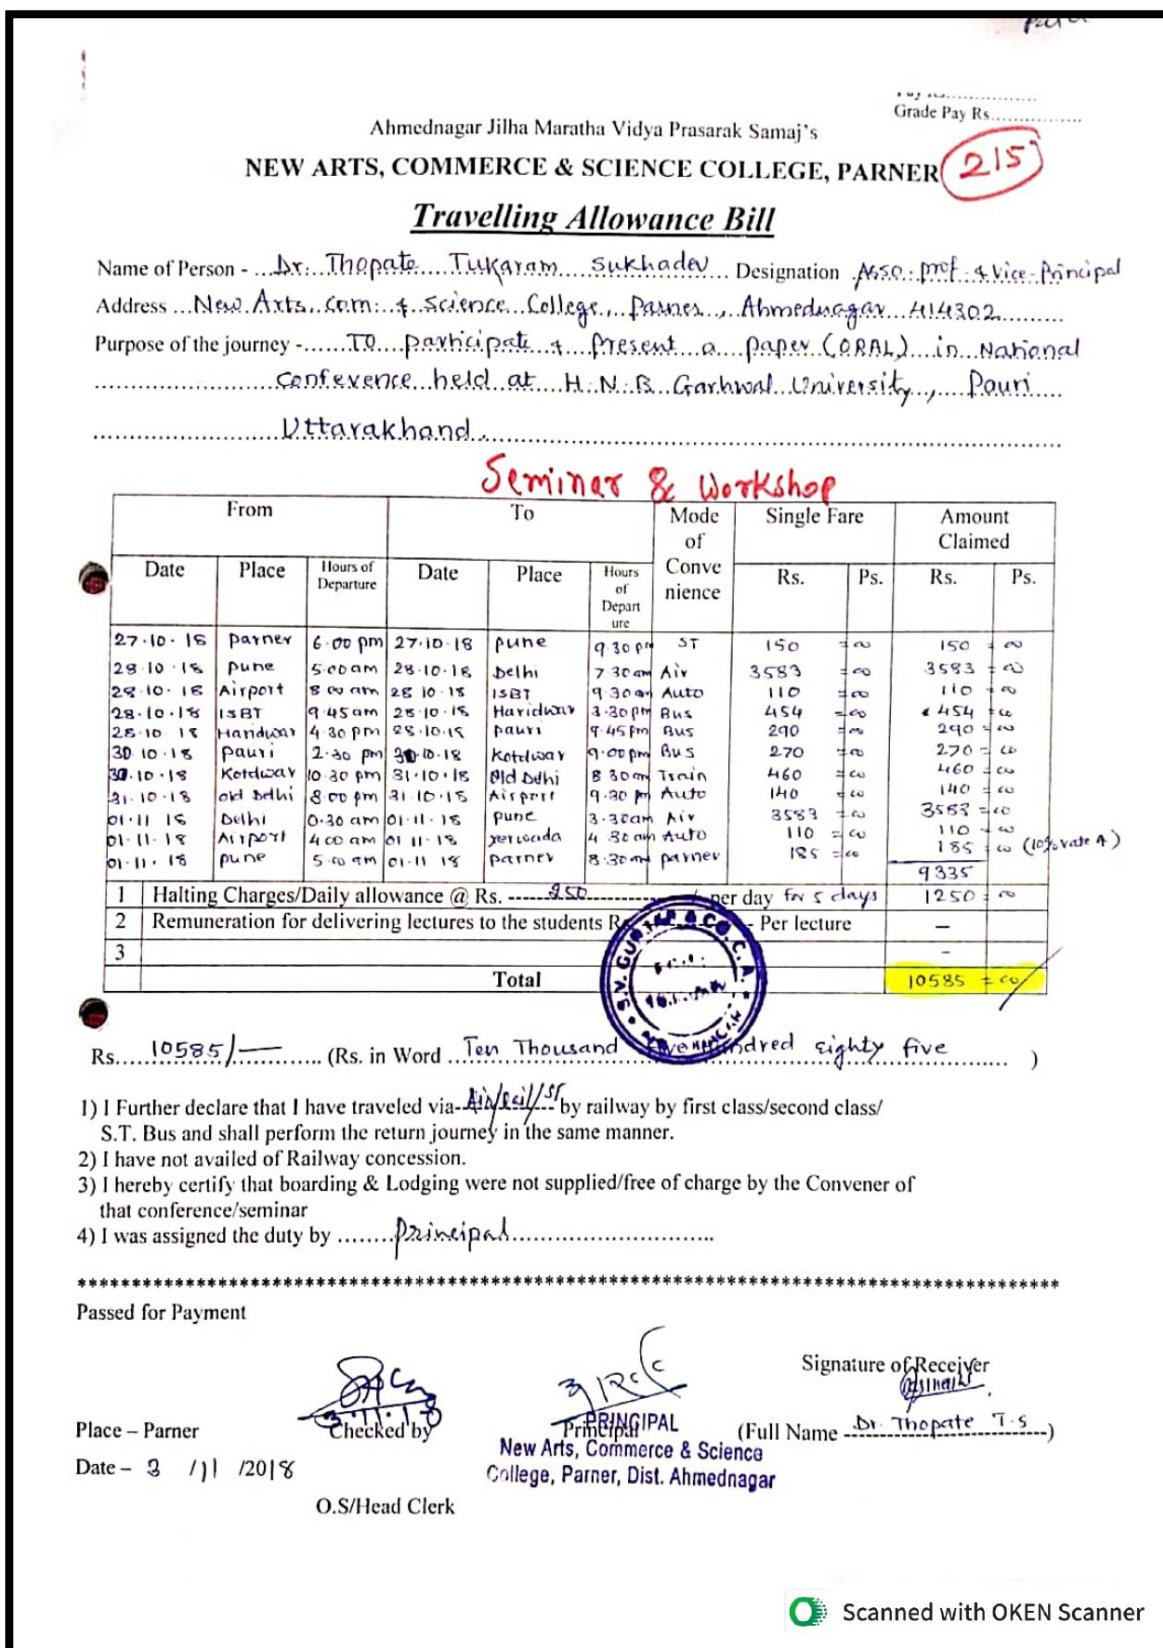 Grade Pay Rs..................
Ahmednagar Jilha Maratha Vidya Prasarak Samaj's
NEW ARTS, COMMERCE & SCIENCE COLLEGE, PARNER 215
Travelling Allowance Bill
Name of Person - Dr. Thopate Tukaram Sukhadev Designation Asso. prof. & Vice-Principal
Address New Arts, com. & science College, Parner, Ahmednagar 414302
Purpose of the journey - TO participate & Present a paper (ORAL) in National
Conference held at H.N.B Garhwal University, Pauri
Uttarakhand
Seminar & Workshop
From To Mode of Conve nience Single Fare Amount Claimed
Date Place Hours of Departure Date Place Hours of Depart ure Rs. Ps. Rs. Ps.
27.10.18 parner 6.00 pm 27.10.18 pune 9.30 pm ST 150 =00 150 =00
28.10.18 pune 5.00am 28.10.18 Delhi 7 30am Air 3583 =00 3583 =00
28.10.18 Airport 8 00 am 28 10.18 ISBT 9.30am Auto 110 =00 110 =00
28.10.18 ISBT 9.45am 28.10.18 Haridwar 3.30pm Bus 454 =00 454 =00
28.10.18 Haridwar 4.30 pm 28.10.18 pauri 9.45pm Bus 290 =00 290 =00
30.10.18 pauri 2.30 pm 30.10.18 Kotdwar 9.00pm Bus 270 =00 270 =00
30.10.18 Kotdwar 10.30 pm 31.10.18 Old Delhi 8 30am Train 460 =00 460 =00
31.10.18 old Delhi 8.00 pm 31.10.18 Airport 9.30 pm Auto 140 =00 140 =00
01.11 18 Delhi 0.30 am 01.11.18 pune 3.30am Air 3583 =00 3583 =00
01.11.18 Airport 4 00 am 01 11.18 yerwada 4 30 am Auto 110 =00 110 =00
01.11.18 pune 5.00 am 01.11 18 parner 8.30am parner 185 =00 185 =00 (10% rate A)
9335
1 Halting Charges/Daily allowance @ Rs. 250 per day for 5 days 1250=00
2 Remuneration for delivering lectures to the students R - Per lecture –
3 -
Total 10585 =00
Rs. 10585/— (Rs. in Word Ten Thousand Five Hundred eighty five )
1) I Further declare that I have traveled via- Air/Rail/ST by railway by first class/second class/
S.T. Bus and shall perform the return journey in the same manner.
2) I have not availed of Railway concession.
3) I hereby certify that boarding & Lodging were not supplied/free of charge by the Convener of
that conference/seminar
4) I was assigned the duty by ........Principal..............................
******************************************************************************************
Passed for Payment
Signature of Receiver
3.11.18
Place – Parner Checked by Principal PRINCIPAL (Full Name Dr. Thopate T.S )
New Arts, Commerce & Science
Date – 3 /11 /2018 College, Parner, Dist. Ahmednagar
O.S/Head Clerk
Scanned with OKEN Scanner